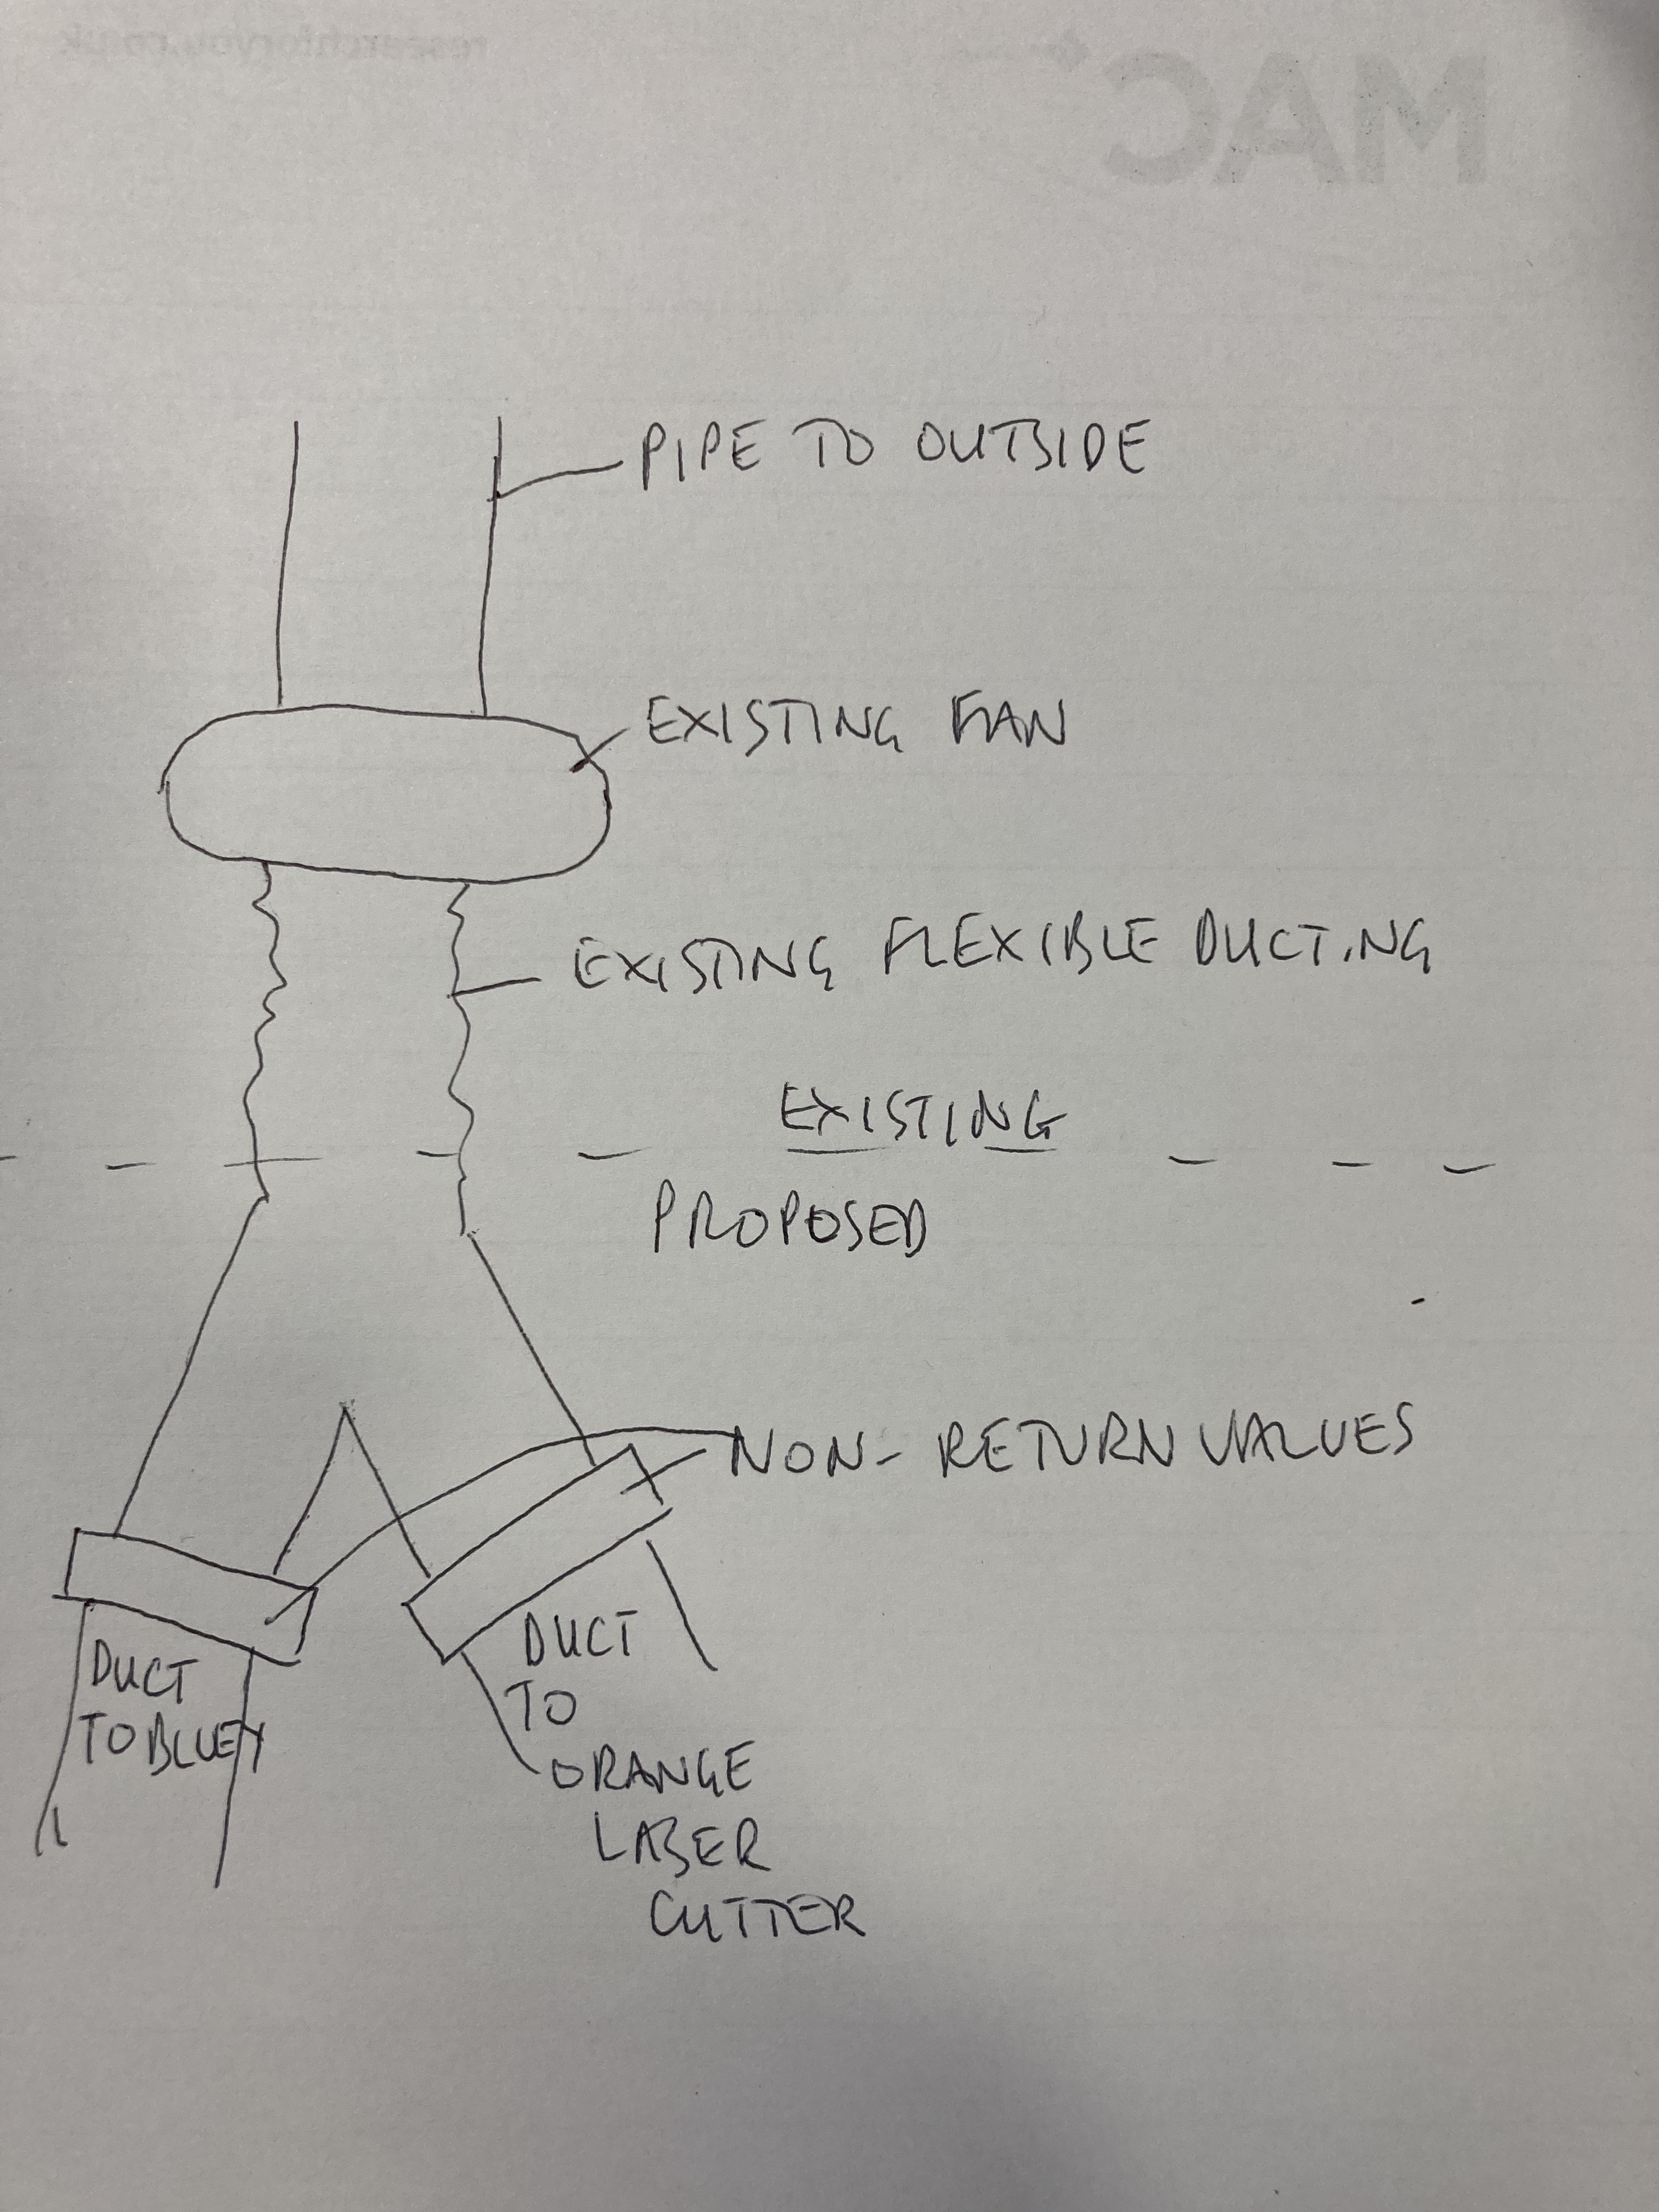 researchforyou.co.uk
MAC
PIPE TO OUTSIDE
EXISTING FAN
EXISTING FLEXIBLE DUCTING
EXISTING
PROPOSED
NON-RETURN VALVES
DUCT
TO BLUEY
DUCT
TO
ORANGE
LASER
CUTTER